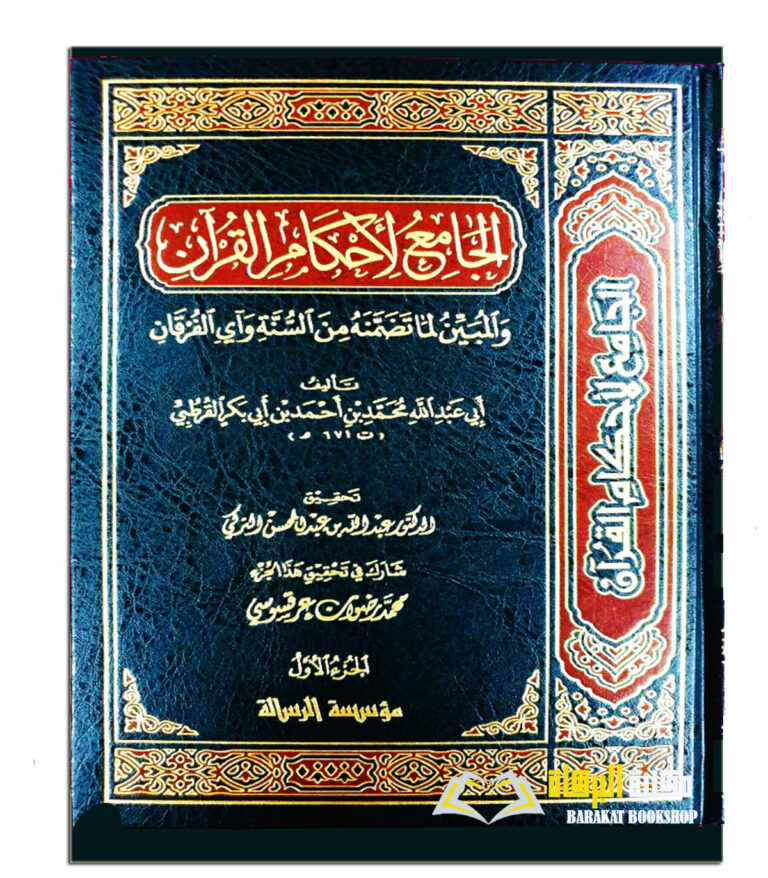 الجَامِعُ لِأَحْكَامِ القُرْآنِ
وَالمُبَيِّنُ لِمَا تَضَمَّنَهُ مِنَ السُّنَّةِ وَآيِ الفُرْقَانِ
تَأليف
أَبِي عَبْدِ اللَّهِ مُحَمَّدِ بْنِ أَحْمَدَ بْنِ أَبِي بَكْرٍ القُرْطُبِيِّ
(ت ٦٧١ ه)
تَحْقِيق
الدكتور عبد الله بن عبد المحسن التركي
شَارَكَ فِي تَحْقِيقِ هَذَا الجُزْءِ
محمد رضوان عرقسوسي
الجُزْءُ الأَوَّلُ
مؤسسة الرسالة
الجامع لأحكام القرآن
BARAKAT BOOKSHOP